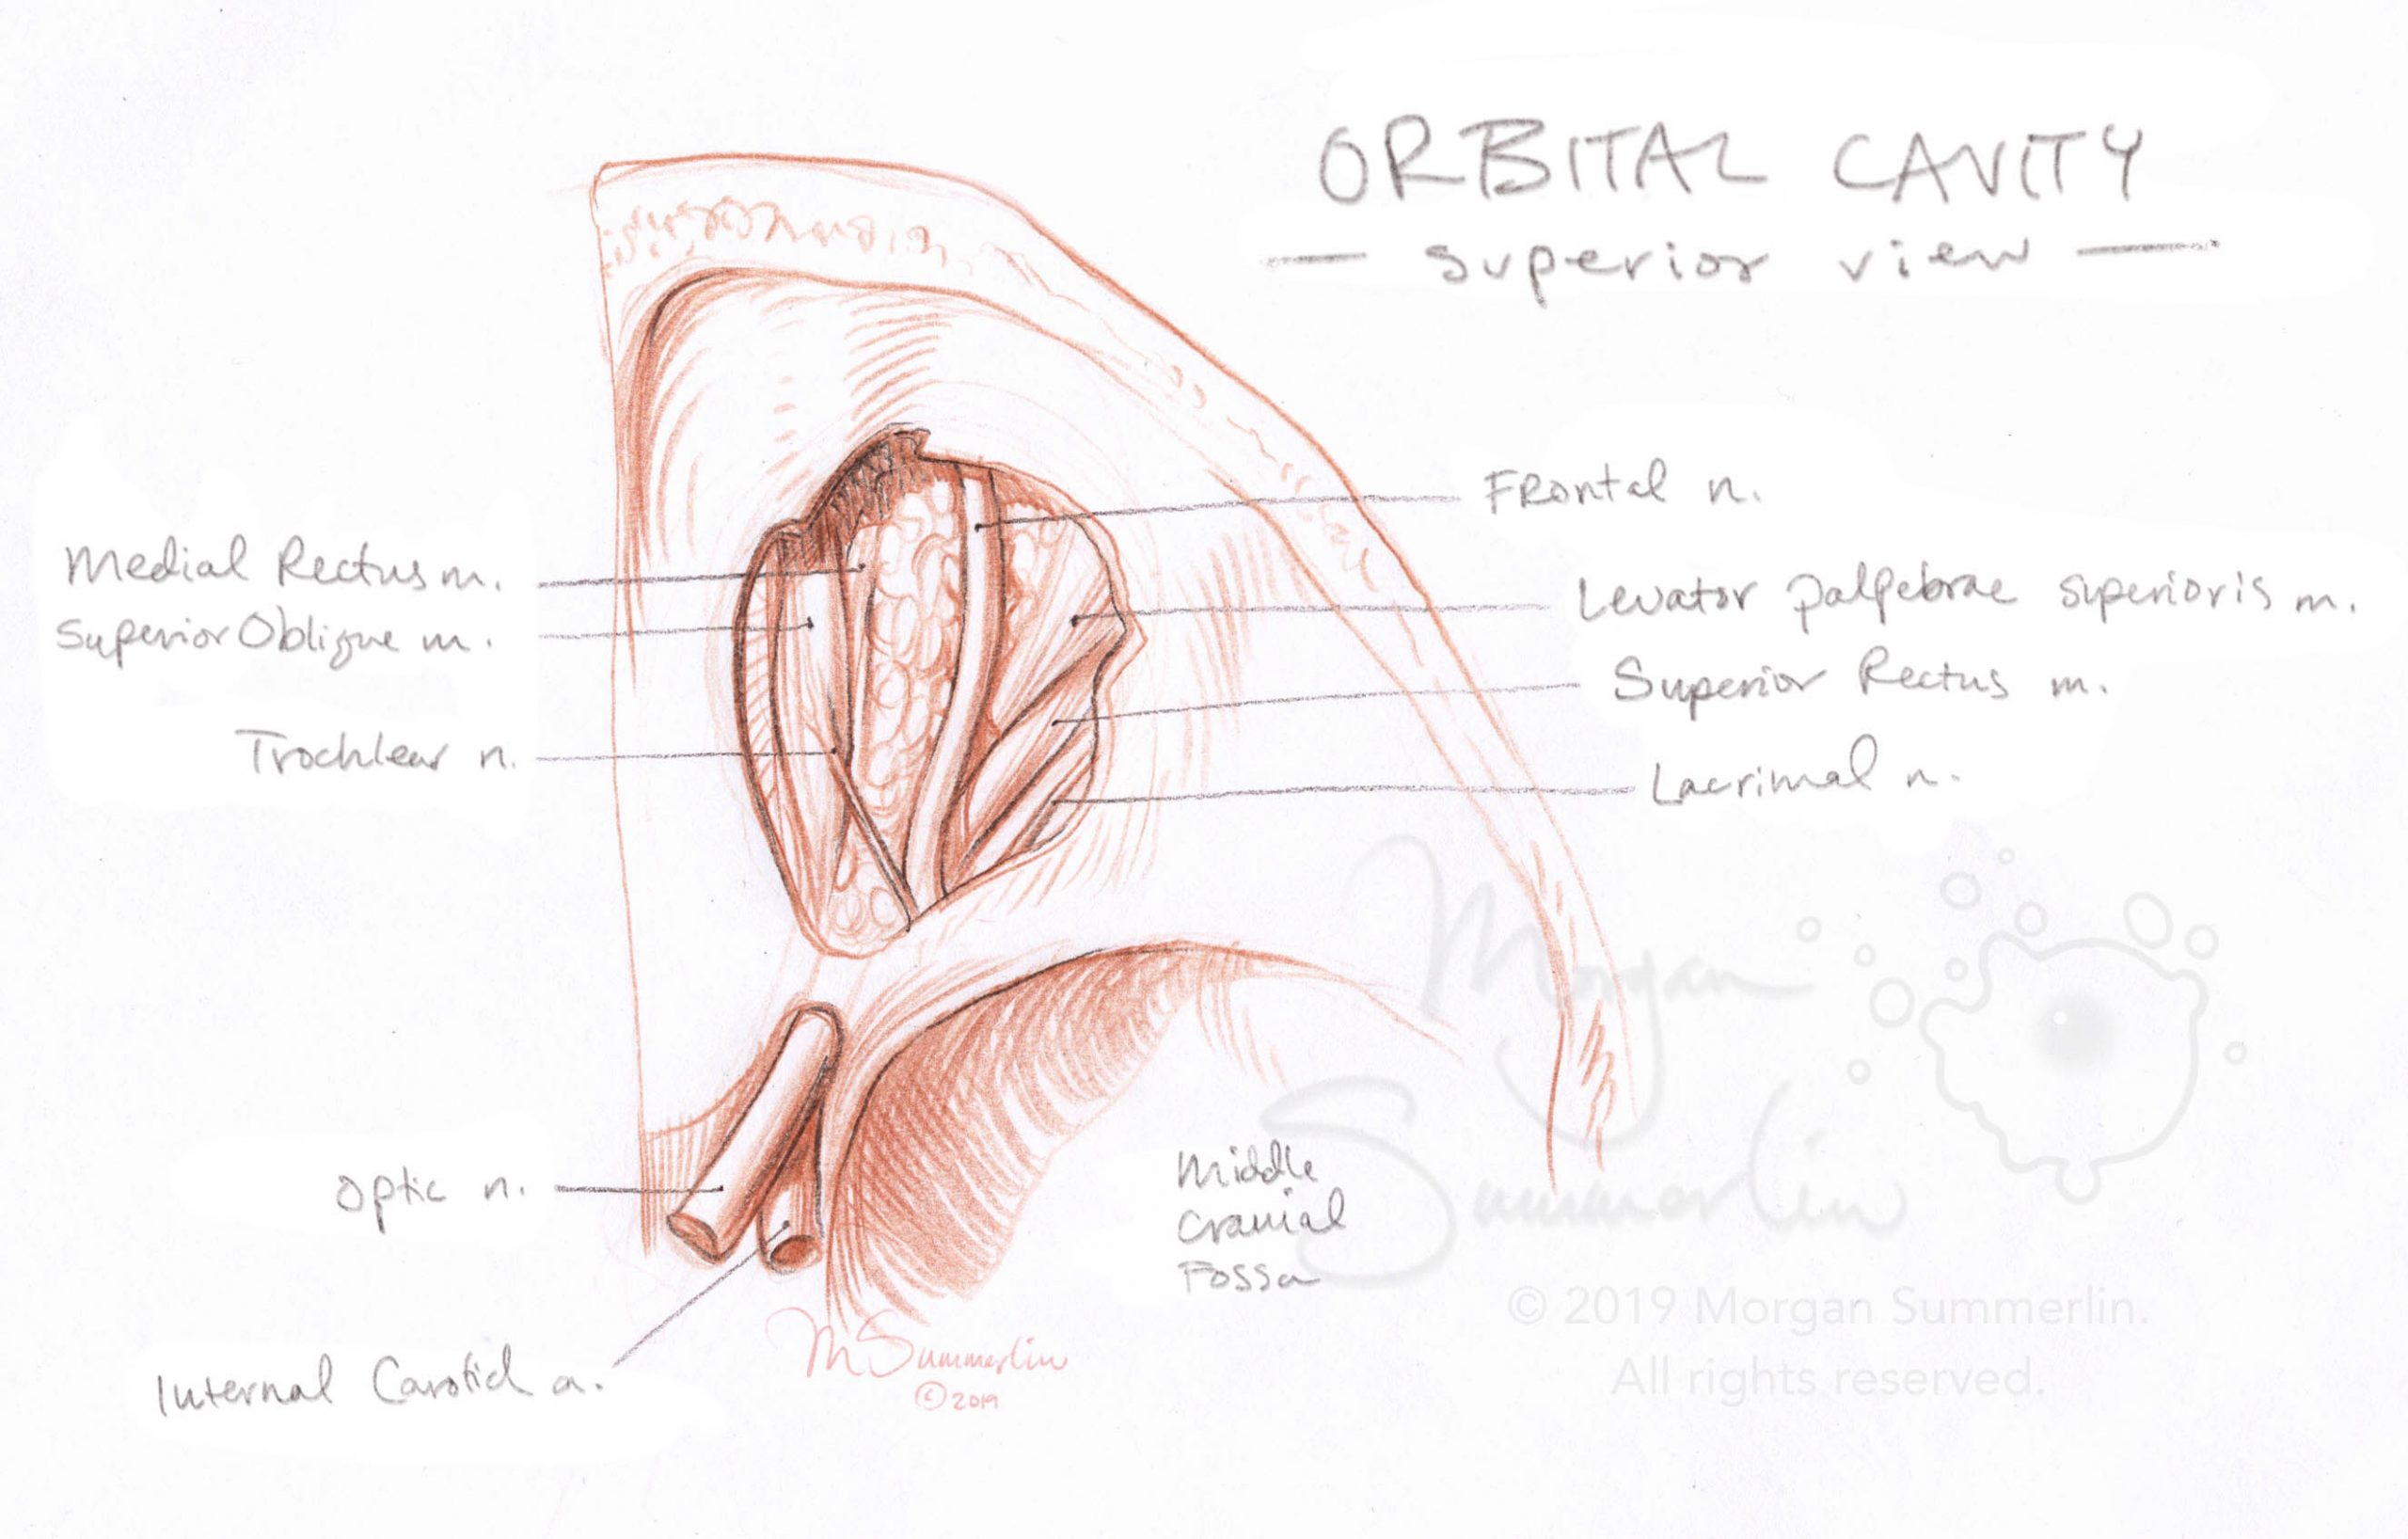 ORBITAL CAVITY
— superior view —
Frontal n.
Medial Rectus m.
Levator palpebrae superioris m.
Superior Oblique m.
Superior Rectus m.
Trochlear n.
Lacrimal n.
Morgan
Summerlin
Optic n.
Middle
Cranial
Fossa
Internal Carotid a.
M Summerlin
© 2019
© 2019 Morgan Summerlin.
All rights reserved.